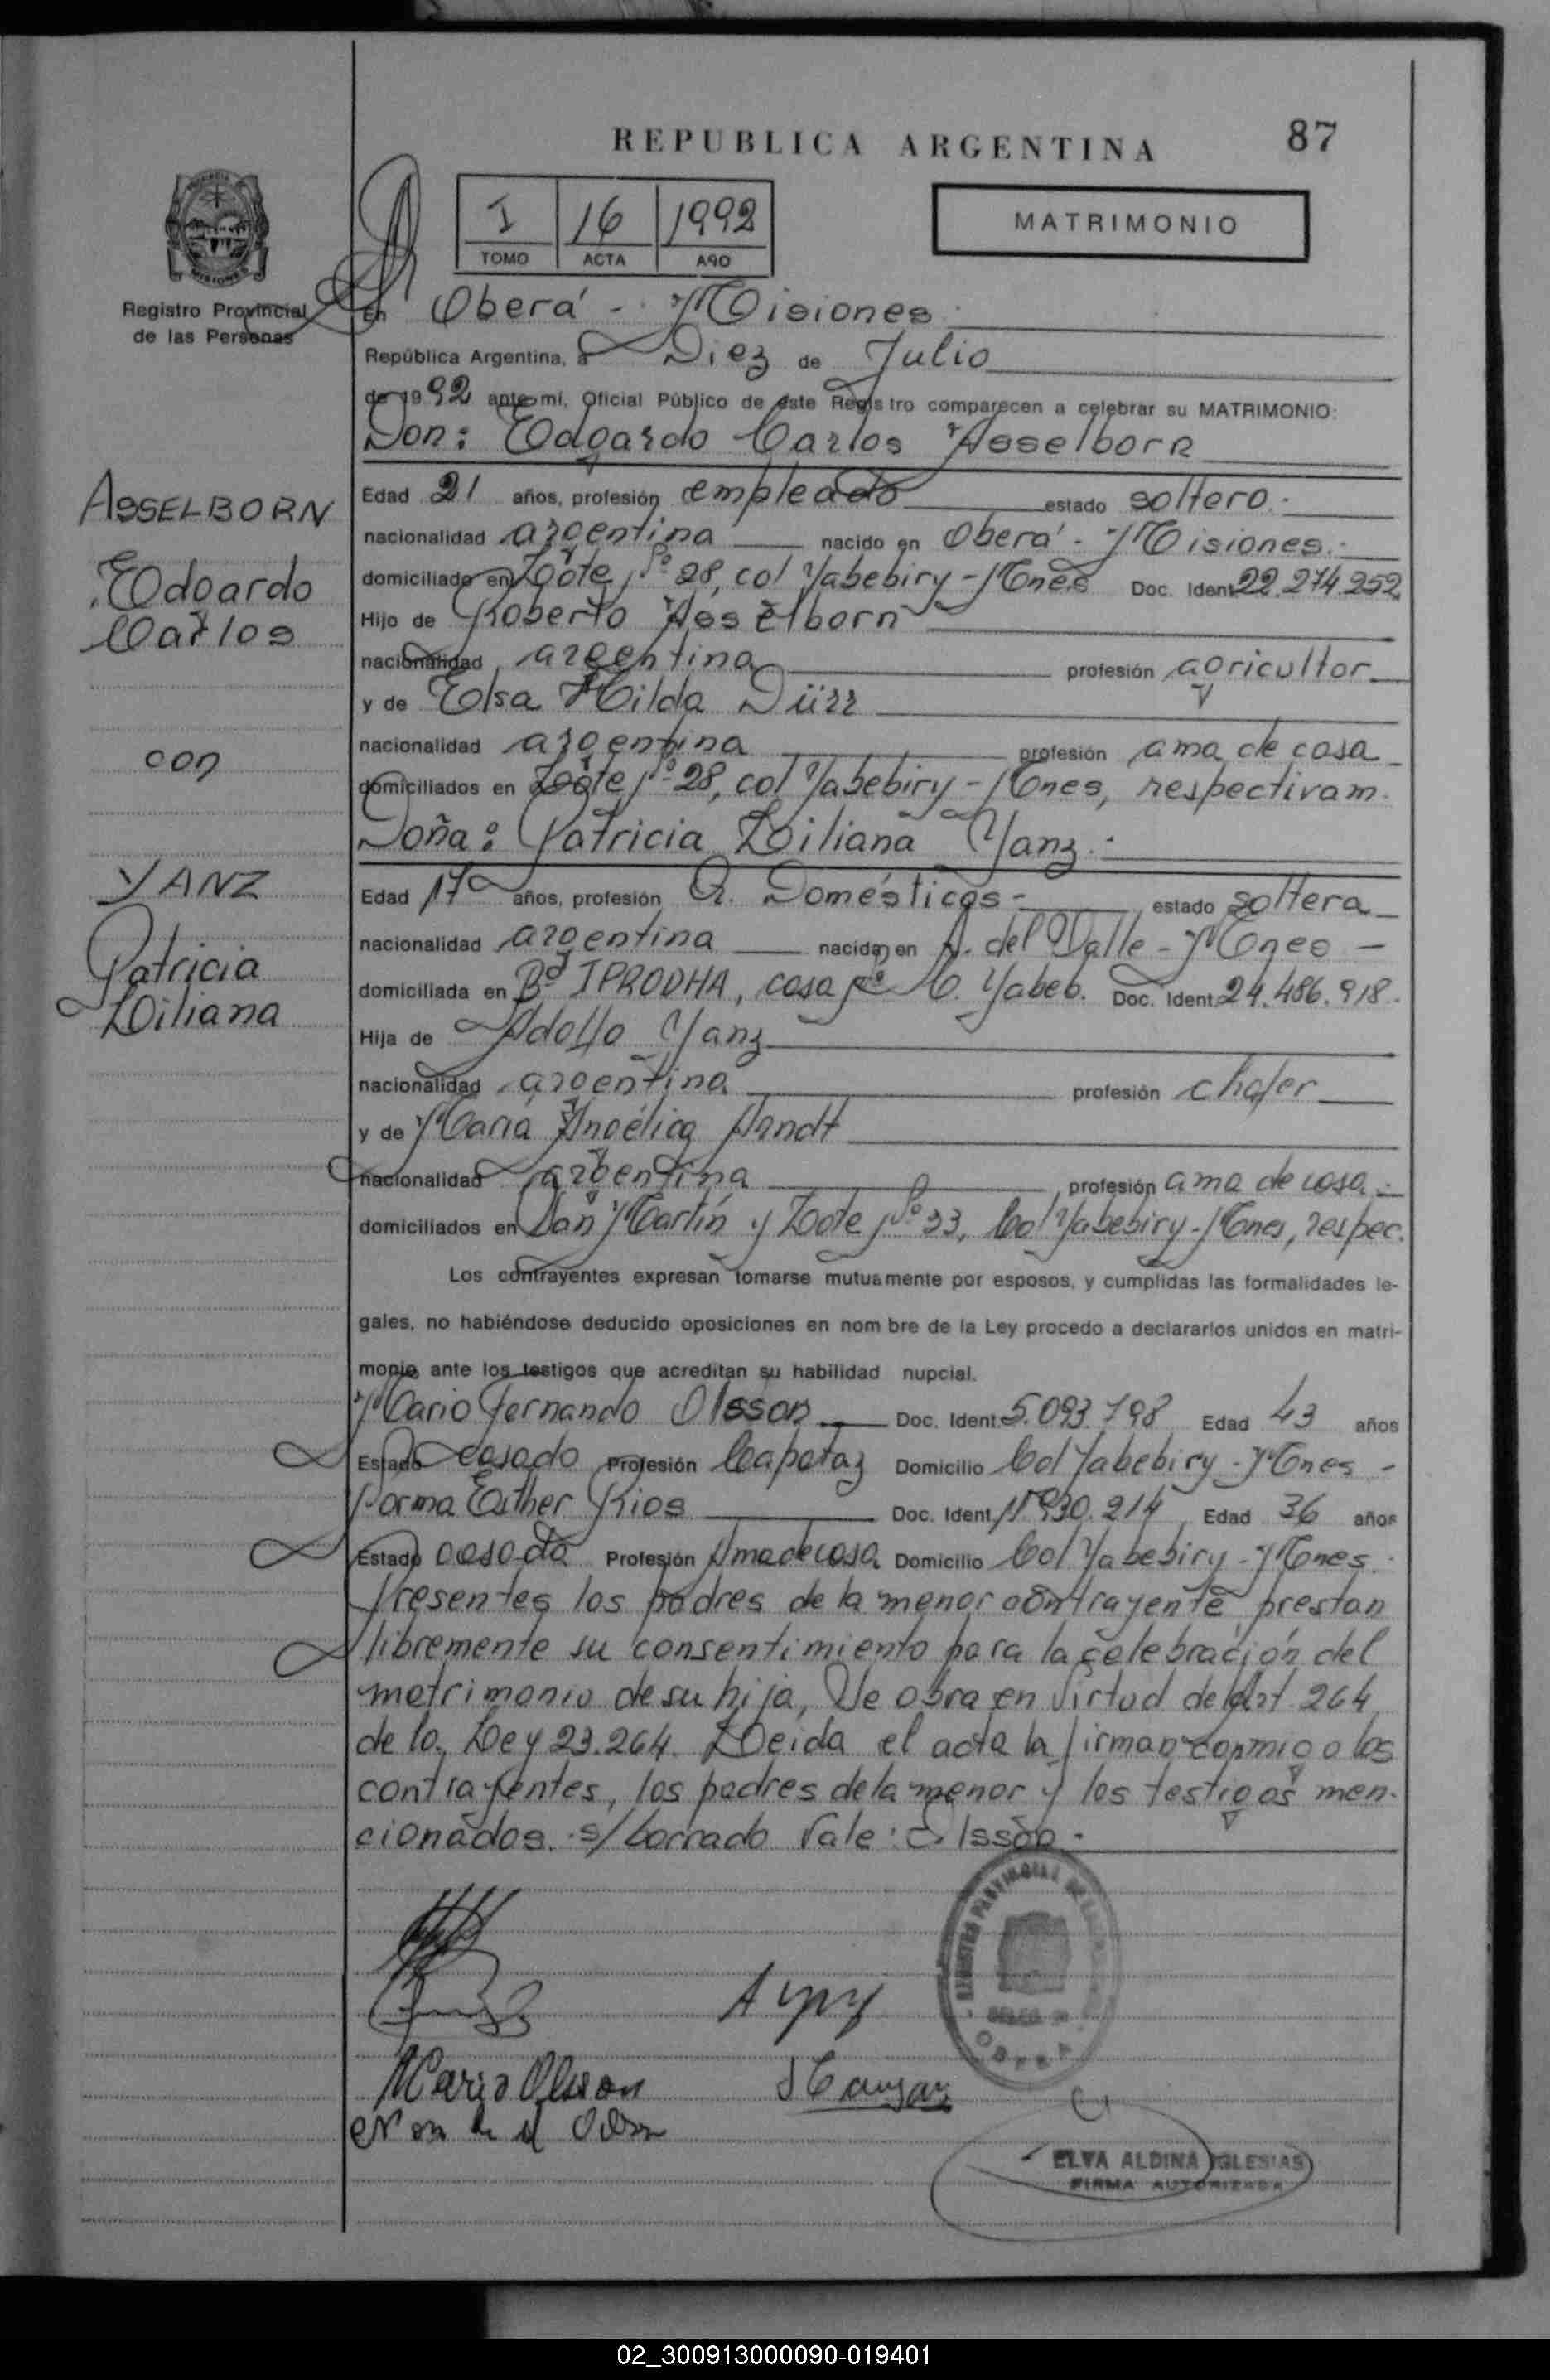 REPUBLICA ARGENTINA
87
I 16 1992
TOMO ACTA AÑO
MATRIMONIO
Registro Provincial
de las Personas
En Oberá - Misiones
República Argentina, a Diez de Julio
de 1992 ante mi, Oficial Público de este Registro comparecen a celebrar su MATRIMONIO:
Don: Edgardo Carlos Asselborn
ASSELBORN
Edgardo
Carlos
con
YANZ
Patricia
Liliana
Edad 21 años, profesión empleado estado soltero.-
nacionalidad argentina nacido en Oberá - Misiones.-
domiciliado en Lote Nº 28, col Yabebiry - Mnes Doc. Ident. 22.274.252
Hijo de Roberto Asselborn
nacionalidad argentina profesión agricultor
y de Elsa Hilda Dürr
nacionalidad argentina profesión ama de casa
domiciliados en Lote Nº 28, col Yabebiry - Mnes, respectivam.
Doña: Patricia Liliana Yanz.-
Edad 17 años, profesión Q. Domésticos - estado soltera
nacionalidad argentina nacida en A. del Valle - Mnes -
domiciliada en Bº IPRODHA, casa Yabeb. Doc. Ident. 24.486.918.
Hija de Adolfo Yanz
nacionalidad argentina profesión chofer
y de María Angélica Arndt
nacionalidad argentina profesión ama de casa.-
domiciliados en San Martín y Lote Nº 33, Col Yabebiry - Mnes, respec.
Los contrayentes expresan tomarse mutuamente por esposos, y cumplidas las formalidades le-
gales, no habiéndose deducido oposiciones en nom bre de la Ley procedo a declararlos unidos en matri-
monio ante los testigos que acreditan su habilidad nupcial.
Mario Fernando Olsson Doc. Ident. 5.093.798 Edad 43 años
Estado casado Profesión Capataz Domicilio Col Yabebiry - Mnes -
Norma Esther Rios Doc. Ident. 11.930.214 Edad 36 años
Estado casada Profesión Ama de casa Domicilio Col Yabebiry - Mnes.
Presentes los padres de la menor contrayente prestan
libremente su consentimiento para la celebración del
matrimonio de su hija, Se obra en virtud del Art 264
de la Ley 23.264. Leida el acta la firman conmigo los
contrayentes, los padres de la menor y los testigos men-
cionados. s/borrado Vale: Olsson -
Mario Olsson
REGISTRO PROVINCIAL DE LAS
OBERA
ELVA ALDINA IGLESIAS
FIRMA AUTORIZADA
02_300913000090-019401